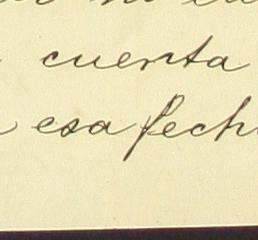 cuenta
esa fech